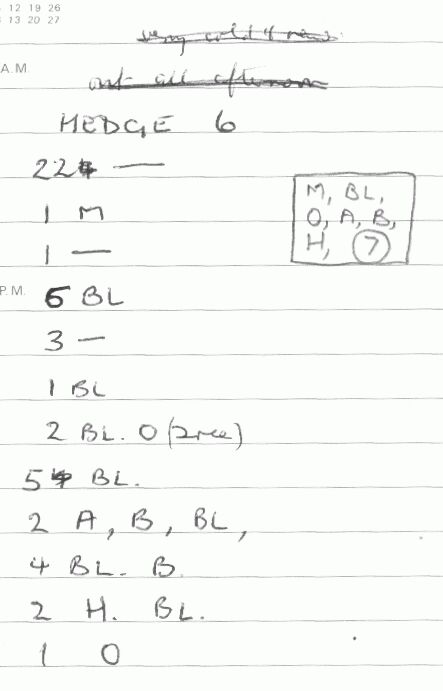 12 19 26
13 20 27
very cold & rain
out all afternoon
A.M.
HEDGE 6
22 —
1 M
1 —
M, BL,
O, A, B,
H, 7
P.M.
5 BL
3 —
1 BL
2 BL. O (tree)
5 BL.
2 A, B, BL,
4 BL. B.
2 H. BL.
1 O